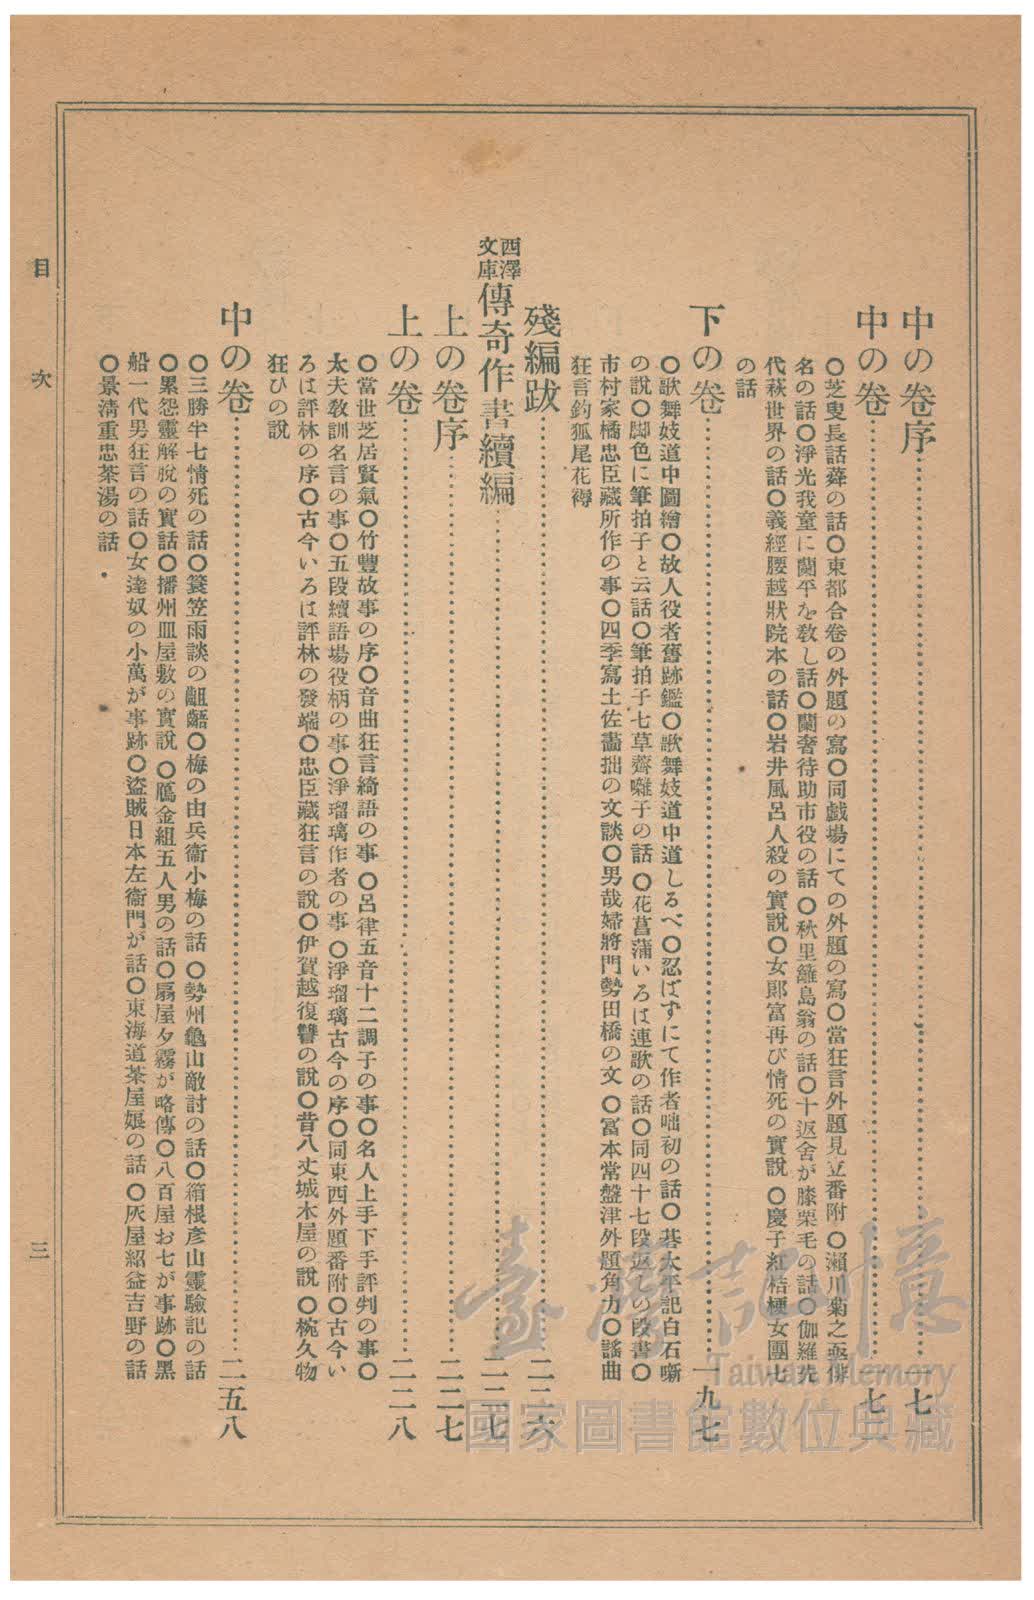 中の卷序……一七一
中の卷……一七一
〇芝叟長話蕣の話〇東都合卷の外題の寫〇同戲場にての外題の寫〇當狂言外題見立番附〇瀨川菊之亟俳
名の話〇淨光我童に蘭平を敎し話〇蘭奢待助市役の話〇秋里籬島翁の話〇十返舍が膝栗毛の話〇伽羅先
代萩世界の話〇義經腰越狀院本の話〇岩井風呂人殺の實說〇女郞富再び情死の實說〇慶子紅桔梗女團七
の話
下の卷……一九七
〇歌舞妓道中圖繪〇故人役者舊跡鑑〇歌舞妓道中道しるべ〇忍ばずにて作者咄初の話〇碁太平記白石噺
の說〇脚色に筆拍子と云話〇筆拍子七草薺囃子の話〇花菖蒲いろは連歌の話〇同四十七段返しの段書〇
市村家橘忠臣藏所作の事〇四季寫土佐畵拙の文談〇男哉婦將門勢田橋の文〇富本常盤津外題角力〇謠曲
狂言釣狐尾花褥
殘編跋……二二六
西澤文庫傳奇作書續編……二二七
上の卷序……二二七
上の卷……二二八
〇當世芝居賢氣〇竹豐故事の序〇音曲狂言綺語の事〇呂律五音十二調子の事〇名人上手下手評判の事〇
太夫敎訓名言の事〇五段續語場役柄の事〇淨瑠璃作者の事〇淨瑠璃古今の序〇同東西外題番附〇古今い
ろは評林の序〇古今いろは評林の發端〇忠臣藏狂言の說〇伊賀越復讐の說〇昔八丈城木屋の說〇椀久物
狂ひの說
中の卷……二五八
〇三勝半七情死の話〇簑笠雨談の齟齬〇梅の由兵衞小梅の話〇勢州龜山敵討の話〇箱根彥山靈驗記の話
〇累怨靈解脫の實話〇播州皿屋敷の實說〇鴈金組五人男の話〇扇屋夕霧が略傳〇八百屋お七が事跡〇黑
船一代男狂言の話〇女達奴の小萬が事跡〇盜賊日本左衞門が話〇東海道茶屋娘の話〇灰屋紹益吉野の話
〇景淸重忠茶湯の話
目次
三
臺灣記憶
Taiwan Memory
國家圖書館數位典藏